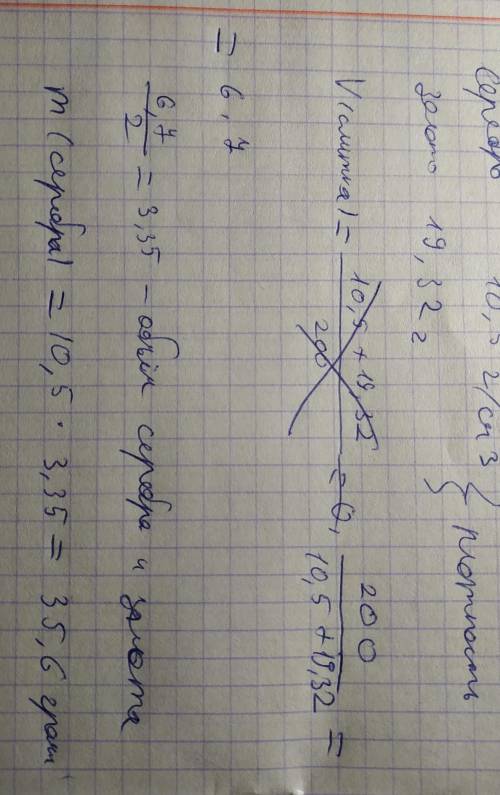 Серебро 10,5 г/см3 } плотность
золото 19,32 г
V(слитка) = 10,5 + 19,32 / 200 = 0, 200 / 10,5 + 19,32 =
= 6,7
6,7 / 2 = 3,35 – объём серебра и золота
m (серебра) = 10,5 · 3,35 = 35,6 грам